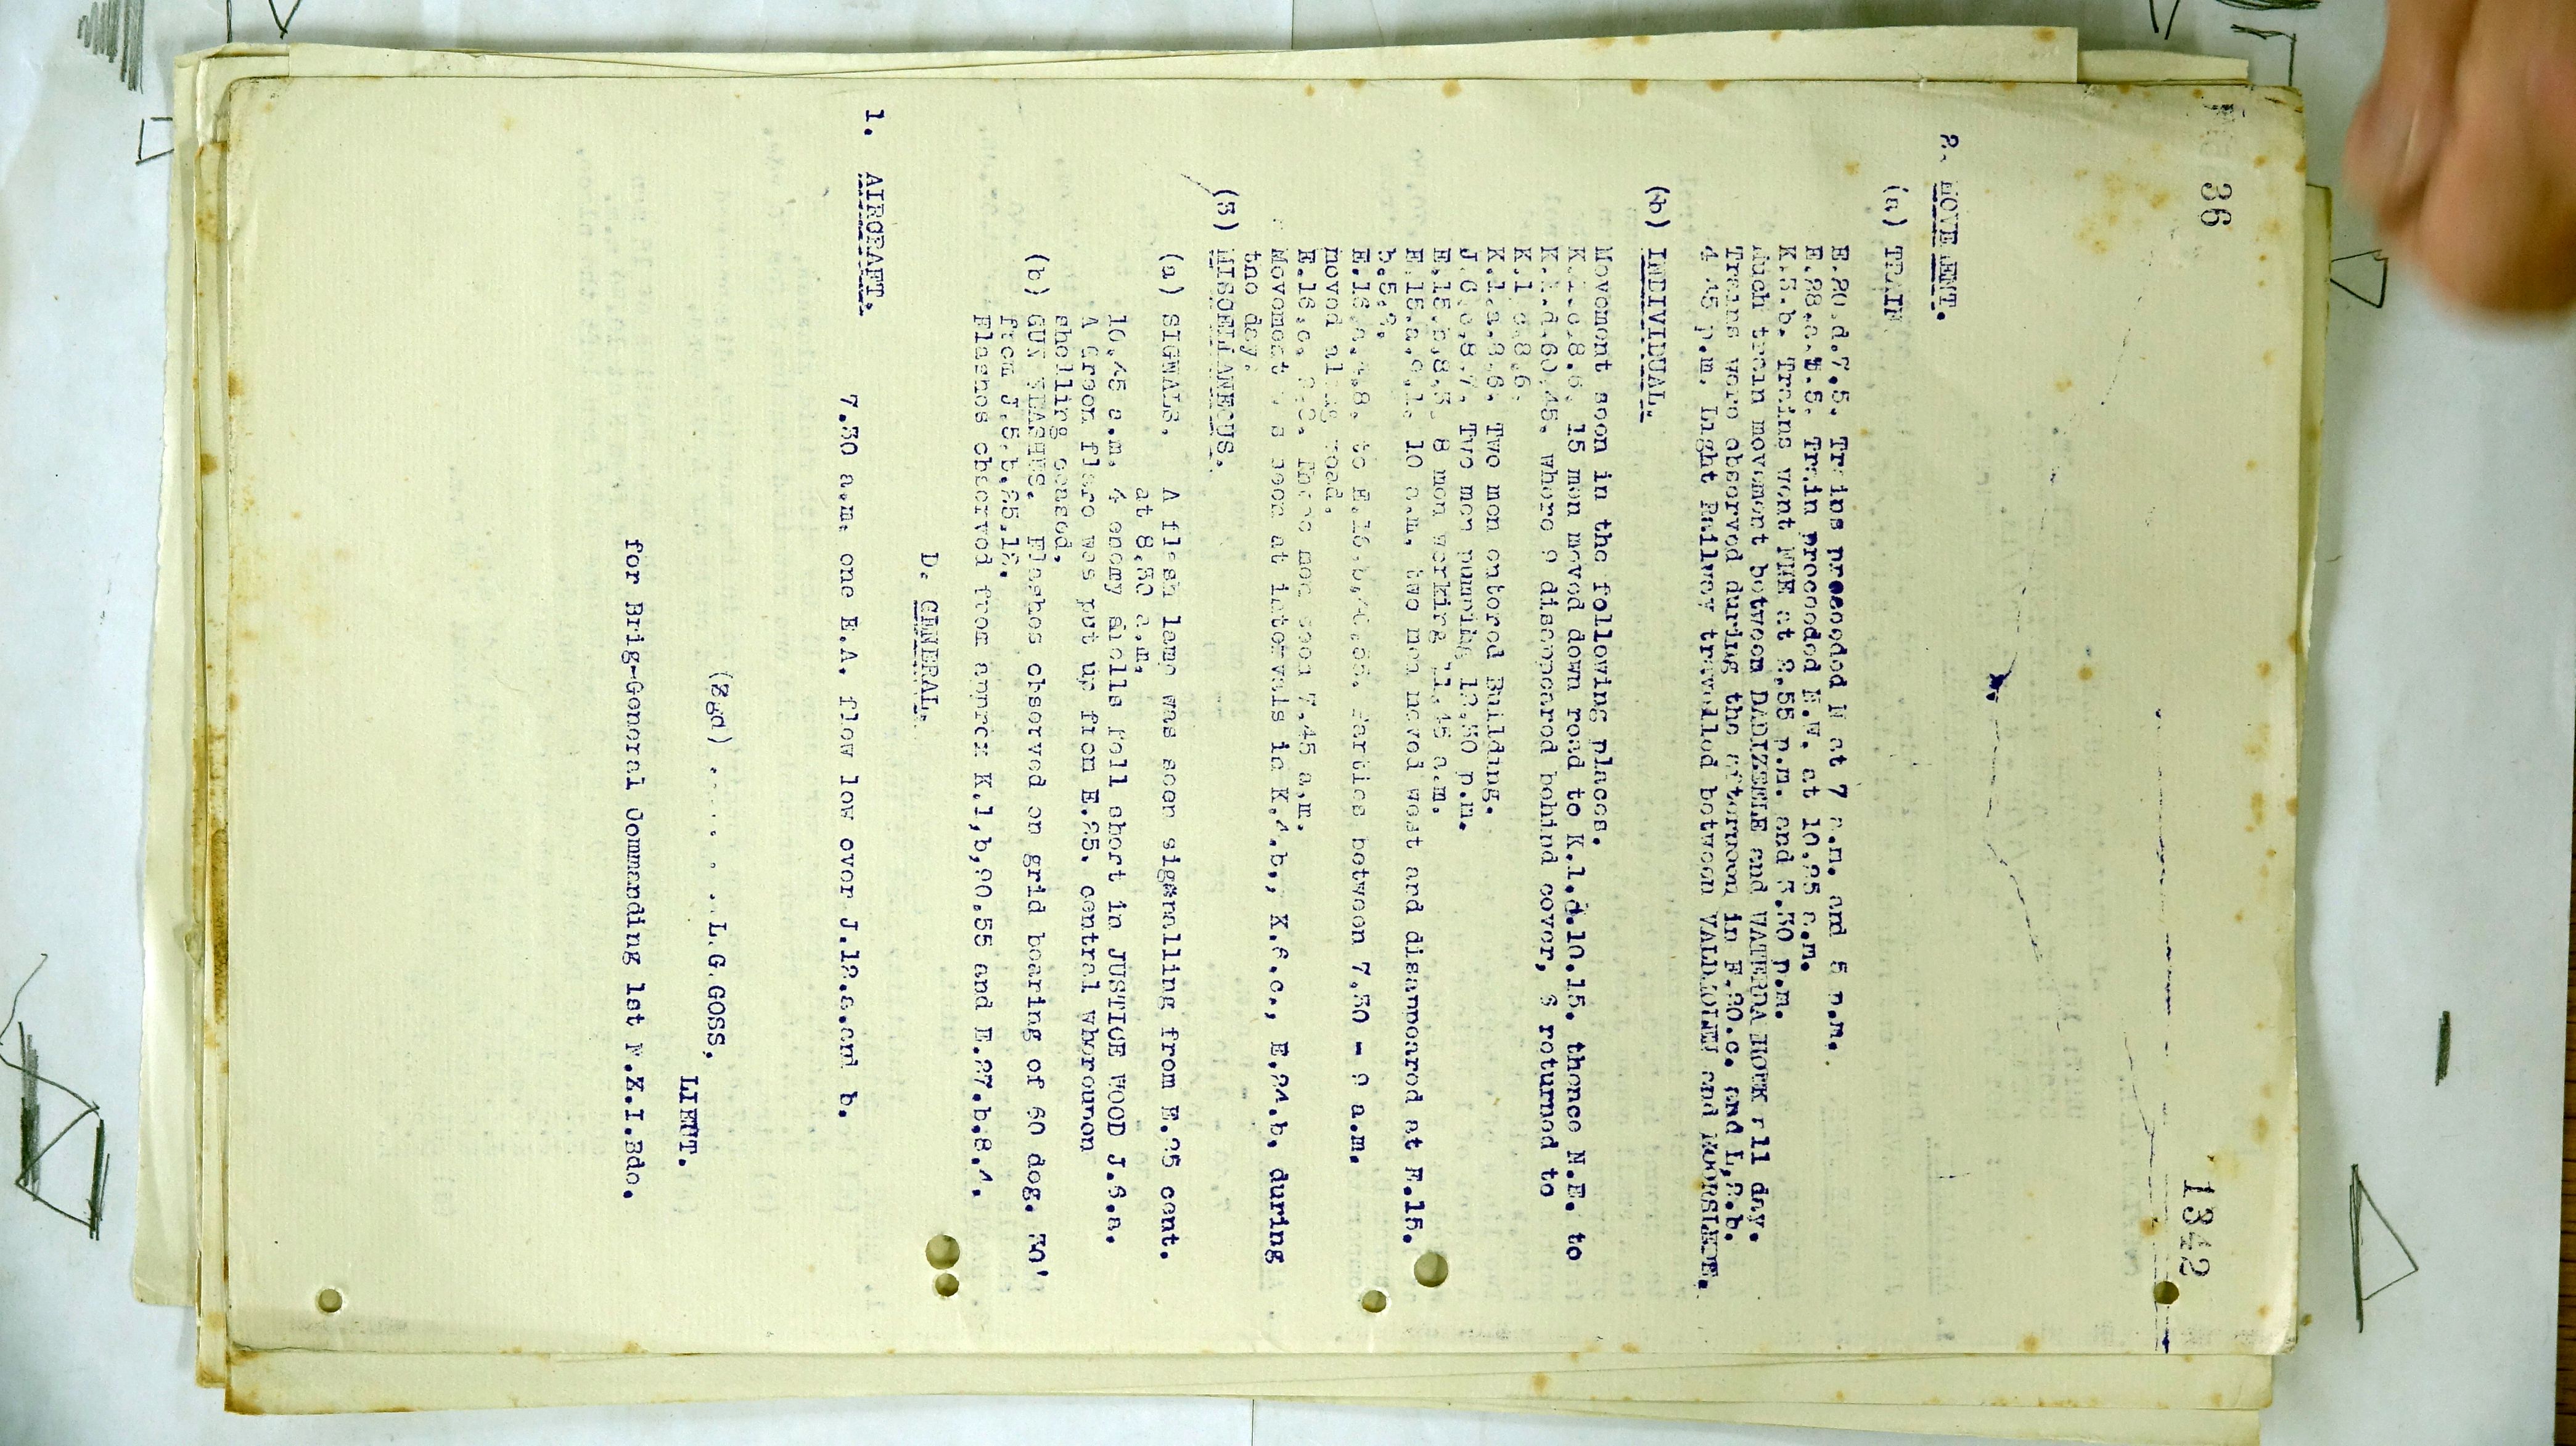 36
1342
2. MOVEMENT.
(a) TRAIN
E.20.d.7.5. Trains proceeded N at 7 a.m. and 5 p.m.
E.28.c. Train proceeded N.W. at 10.25 a.m.
K.3.b. Trains went NNE at 2.55 p.m. and 3.30 p.m.
Much train movement between DADIZEELE and WATERDAMHOEK all day.
Trains were observed during the afternoon in F.20.c. and L.2.b.
4.45 p.m. Light Railway travelled between WALDMOLEN and MOORSLEDE.
(b) INDIVIDUAL.
Movement seen in the following places.
15 men moved down road to K.1.d.10.15. thence N.E. to
K.1.d.60.45. where 9 disappeared behind cover, 6 returned to
K.1.c.8.6.
K.1.a.2.6. Two men entered Building.
J.6.c.8.7. Two men running 12.30 p.m.
E.15.b.8.3. 8 men working 11.45 a.m.
E.15.a.9.1. 10 a.m. two men moved west and disappeared at E.15.
b.5.2.
Parties between 7.30 - 9 a.m.
moved along road.
E.16.c. Three men seen 7.45 a.m.
Movement was seen at intervals in K.4.b., K.6.c., E.24.b. during
the day.
(3) MISCELLANEOUS.
(a) SIGNALS. A flash lamp was seen signalling from E.25 cent.
at 8.30 a.m.
10.45 a.m. 4 enemy shells fell short in JUSTICE WOOD J.6.a.
A Green flare was put up from E.25. central whereupon
shelling ceased.
(b) GUN FLASHES. Flashes observed on grid bearing of 60 deg. 30'
from J.5.b.25.15.
Flashes observed from approx K.1.b.90.55 and E.27.b.8.4.
D. GENERAL.
1. AIRCRAFT. 7.30 a.m. one E.A. flew low over J.12.a.and b.
(Sgd) . . . . . . . L.G.GOSS,
LIEUT.
for Brig-General Commanding 1st N.Z.I.Bde.